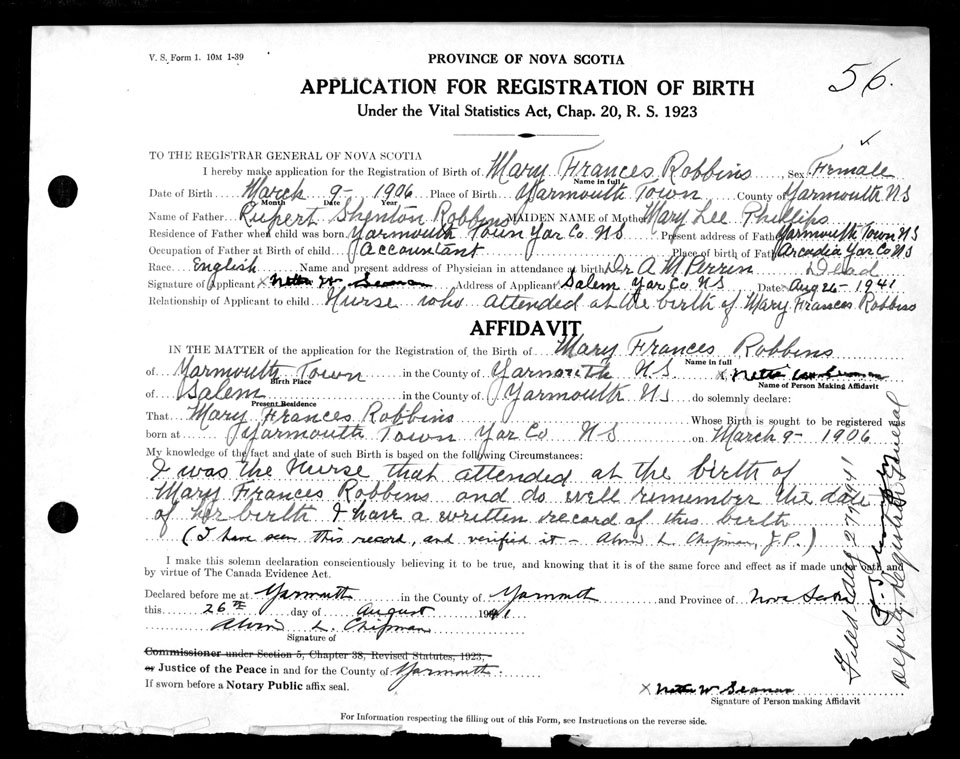 V. S. Form 1. 10M 1-39
56.
PROVINCE OF NOVA SCOTIA
APPLICATION FOR REGISTRATION OF BIRTH
Under the Vital Statistics Act, Chap. 20, R. S. 1923
x
TO THE REGISTRAR GENERAL OF NOVA SCOTIA
I hereby make application for the Registration of Birth of Mary Frances Robbins, Sex Female
Name in full
Date of Birth March 9- 1906 Place of Birth Yarmouth Town County of Yarmouth N S
Month Date Year
Name of Father Rupert Shenton Robbins MAIDEN NAME of Mother Mary Lee Phillips
Residence of Father when child was born Yarmouth Town Yar Co. N S Present address of Father Yarmouth Town N S
Occupation of Father at Birth of child Accountant Place of birth of Father Arcadia Yar Co N S
Race English Name and present address of Physician in attendance at birth Dr A M Perrin Dead
Signature of Applicant x Netta W Seaman Address of Applicant Salem Yar Co N S Date Aug 26- 1941
Relationship of Applicant to child Nurse who attended at the birth of Mary Frances Robbins
AFFIDAVIT
IN THE MATTER of the application for the Registration of the Birth of Mary Frances Robbins
Name in full
of Yarmouth Town in the County of Yarmouth N S x Netta W Seaman
Birth Place Name of Person Making Affidavit
of Salem in the County of Yarmouth N S do solemnly declare:
Present Residence
That Mary Frances Robbins Whose Birth is sought to be registered was
born at Yarmouth Town Yar Co N S on March 9- 1906
My knowledge of the fact and date of such Birth is based on the following Circumstances:
I was the Nurse that attended at the birth of
Mary Frances Robbins and do well remember the date
of her birth I have a written record of this birth
(I have seen this record, and verified it - Alvin L. Chipman, J.P.)
I make this solemn declaration conscientiously believing it to be true, and knowing that it is of the same force and effect as if made under oath and
by virtue of The Canada Evidence Act.
Declared before me at Yarmouth in the County of Yarmouth and Province of Nova Scotia
this 26th day of August 1941
Alvin L. Chipman
Signature of
Commissioner under Section 5, Chapter 38, Revised Statutes, 1923,
or Justice of the Peace in and for the County of Yarmouth.
If sworn before a Notary Public affix seal.
x Netta W Seaman
Signature of Person making Affidavit
For Information respecting the filling out of this Form, see Instructions on the reverse side.
Filed Aug 27 1941
Deputy Registrar General